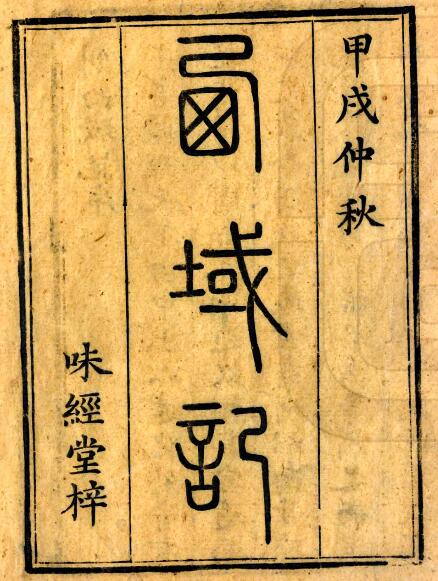 甲戌仲秋
西域記
味經堂梓